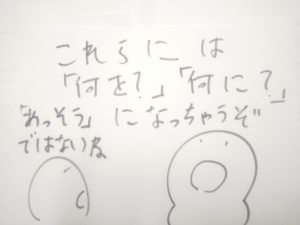 これらには
「何を?」「何に?」
「あっそう」になっちゃうぞ
ではないな